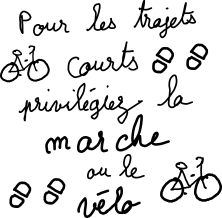 Pour les trajets
courts
privilégiez la
marche
ou le
vélo